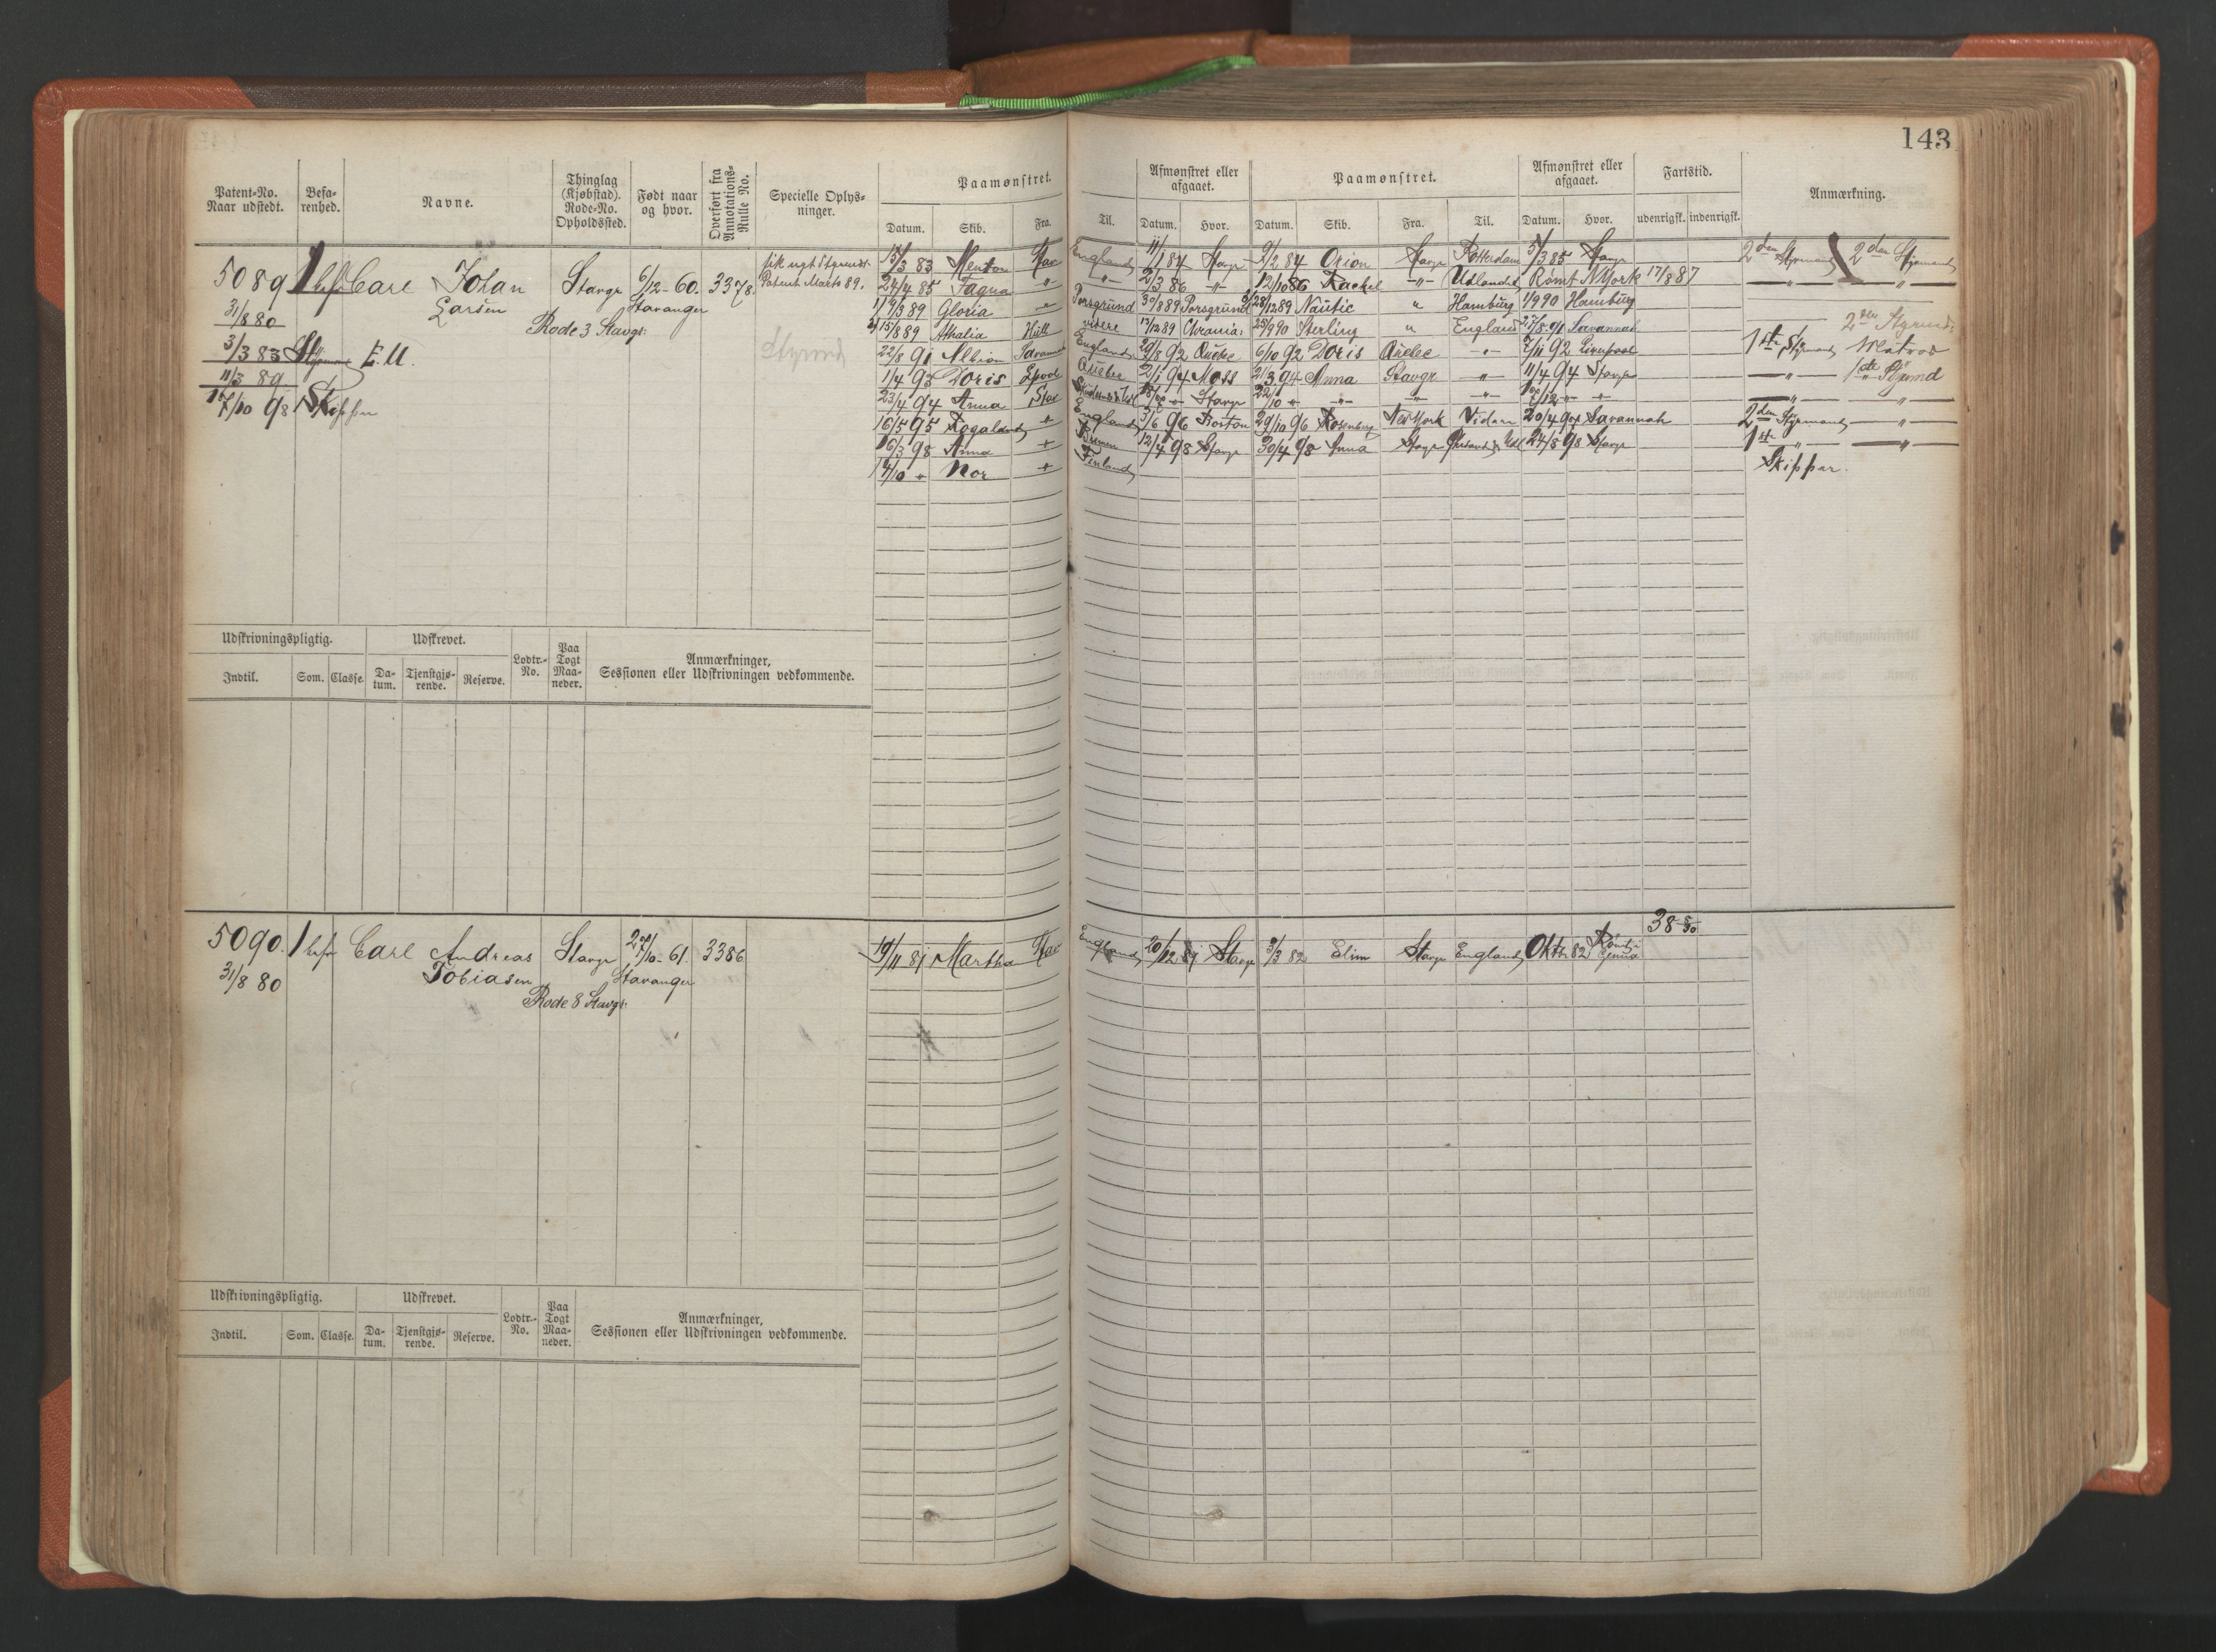 143
Patent-No. Naar udstedt. Befarenhed. Navne. Thinglag (Kjøbstad). Rode-No. Opholdssted. Født naar og hvor. Overført fra Annotations-Rulle No. Specielle Oplysninger. Paamønstret. Datum. Skib. Fra. Til. Afmønstret eller afgaaet. Datum. Hvor. Paamønstret. Datum. Skib. Fra. Til. Afmønstret eller afgaaet. Datum. Hvor. Fartstid. udenrigsk. indenrigsk. Anmærkning.
5089 Carl Johan Larsen Stavgr 6/12-60. Stavanger 3378.
Rode 3 Stavgr:
31/8 80
3/3 83 Styrmand E.U.
11/3 89
7/10 98 Skipper
Patent Marts 89.
Styrmd
15/3 83 Mentor Stav England 11/1 84 Stavgr 2/2 84 Orion Stavgr Rotterdam 5/3 85 Stavgr 2den Styrmand 2den Styrmand
24/4 85 Fagna -"- -"- 2/3 86 -"- 12/10 86 Rachel -"- Udlandet Rømt N York 17/8 87 -"- -"-
19/3 89 Gloria " Porsgrund 30/8 89 Porsgrund 28/12 89 Nautic " Hamburg 1/9 90 Hamburg
15/8 89 Athalia Hull videre 17/12 89 Chrania: 25/9 90 Sterling " England Savannah 2den Styrmd:
22/8 91 Albion Savannah England 20/8 92 Quebec 6/10 92 Doris Quebec -"- 7/11 92 Liverpool 1ste Styrmand Matros
1/4 93 Doris Lpool Quebec 2/1 94 Moss 2/3 94 Anna Stavgr -"- 11/4 94 Stavgr -"- 1ste Styrmd
23/4 94 Anna Stav Stavgr 22/10 " -"- -"- -"- -"- -"-
16/5 95 Rogaland " England 3/6 96 Boston 29/10 96 Rosenberg NewYork Videre 20/4 97 Savannah 2den Styrmand -"-
16/3 98 Anna " Bremen 12/4 98 Stavgr 30/4 98 Anna Stavgr 24/8 98 Stavgr 1ste -"- -"-
14/10 " Nor " Finland Skipper.
Udskrivningspligtig. Udskrevet. Lodtr.-No. Paa Togt Maaneder. Anmærkninger, Sessionen eller Udskrivningen vedkommende.
Indtil. Som. Classe. Datum. Tjenstgjørende. Reserve.
38-
5090. Carl Andreas Tobiasen Stavgr 27/10-61. Stavanger 3386 19/11 81 Martha Stav England 20/12 81 Stavgr 3/3 82 Elim Stavgr England Oktb 82 Rømt i Genua
31/8 80
Rode 8 Stavgr:
Udskrivningspligtig. Udskrevet. Lodtr.-No. Paa Togt Maaneder. Anmærkninger, Sessionen eller Udskrivningen vedkommende.
Indtil. Som. Classe. Datum. Tjenstgjørende. Reserve.